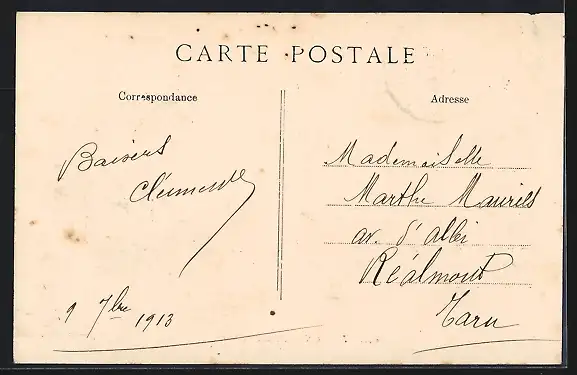 CARTE POSTALE
Correspondance
Adresse
Baisers
Clémente
9 7bre 1913
Mademoiselle
Marthe
av. d'Albi
Réalmont
Tarn